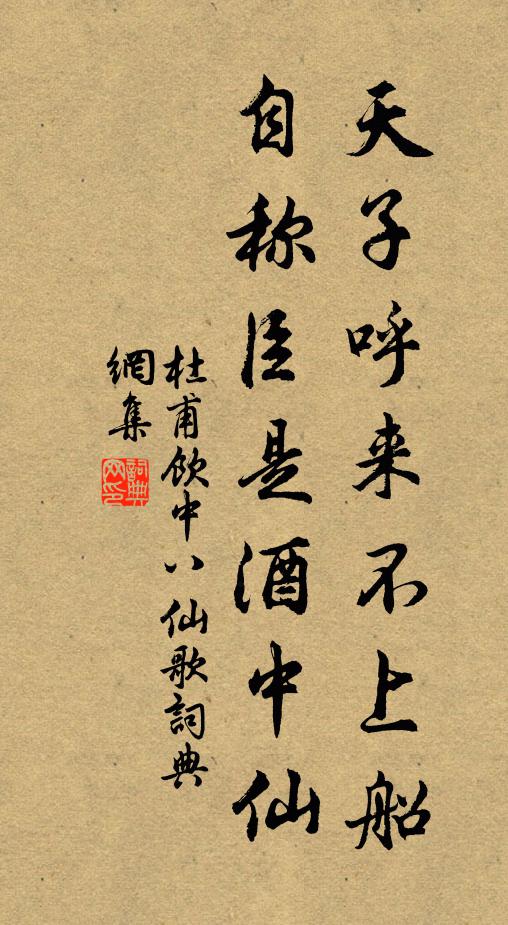 天子呼来不上船
自称臣是酒中仙
杜甫飲中八仙歌詞典
網集
詞典
网印